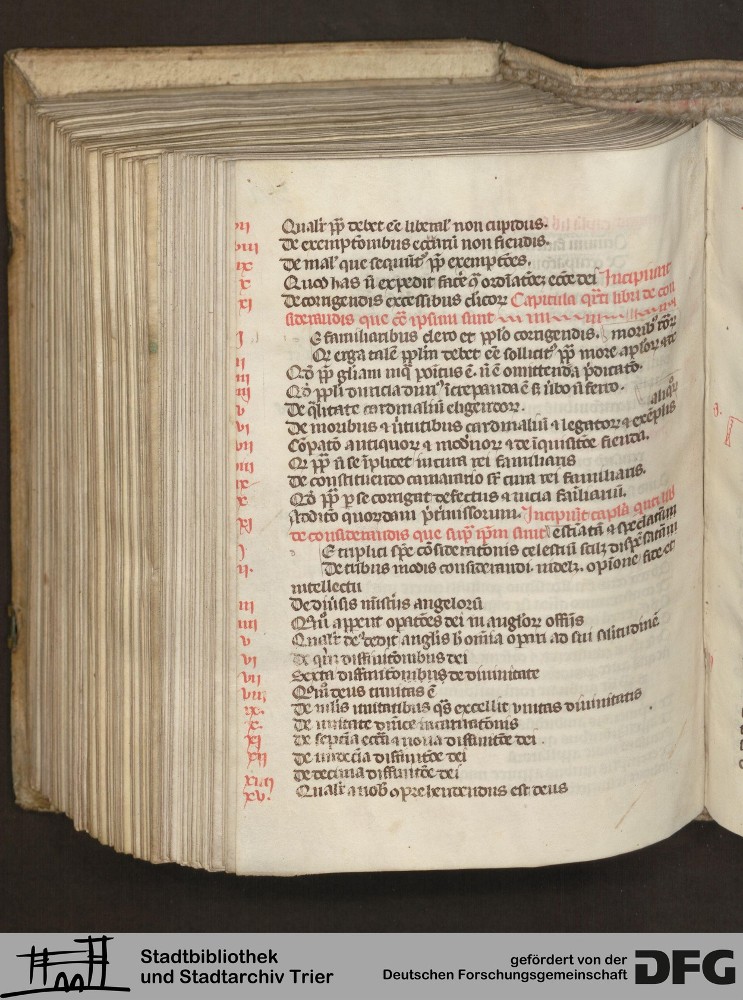 vii Qualr pp debet ee liberal non cupidus.
viii De exemptonibus eccarum non fiendis.
ix De mal que sequunt pp exemptoes.
x Quod has n expedit facere ordinatoes ecce dei Incipiunt
xi De corrigendis excessibus clicor Capitula qrti libri de con
siderandis que ce ipsum sunt
i E familiaribus clero et pplo corrigendis. moribus
ii Qr erga tale pplm debet ee sollicit pp more
iii Qd pp gliam nuq omittenda pdicato.
iiii Qd ppli duricia increpanda e verbo n ferro.
v De qlitate cardinaliu eligendor. aliquor
vi De moribus et virtutibus cardinaliu et legator et exemplis
vii Compato antiquor et modnor et de inquisitoe fienda.
viii Qr pp n se implicet in cura rei familiaris
ix De constituendo camarario sr cura rei familiaris.
x Qd pp per se corrigat defectus et vicia familiariu.
xi quordam ptmissorum. Incipiunt capla quinti lib
de considerandis que supra ipm sunt
i E triplici spe consideratonis celestiu scilz
ii. De tribus modis considerandi. videlz. opinione fide et
intellectu
iii De diusis misteriis angeloru
iiii Qm apparent opatoes dei in anglor offiis
v Qualr anglis omia opari ad sui silitudine
vi De qtuor diffinitonibus dei
vii Sexta diffinitonibus de diuinitate
viii Qm deus trinitas e
ix. De illis vnitatibus qs excellit vnitas diuinitatis
x. De vnitate dnice incarnatonis
xi De septia ecca et noua diffinitoe dei
xii De vndecia diffinitoe dei
De decima diffinitoe dei
xiiii
xv. Qualr a nob oprehendendus est deus
Stadtbibliothek
und Stadtarchiv Trier
gefördert von der
Deutschen Forschungsgemeinschaft
DFG